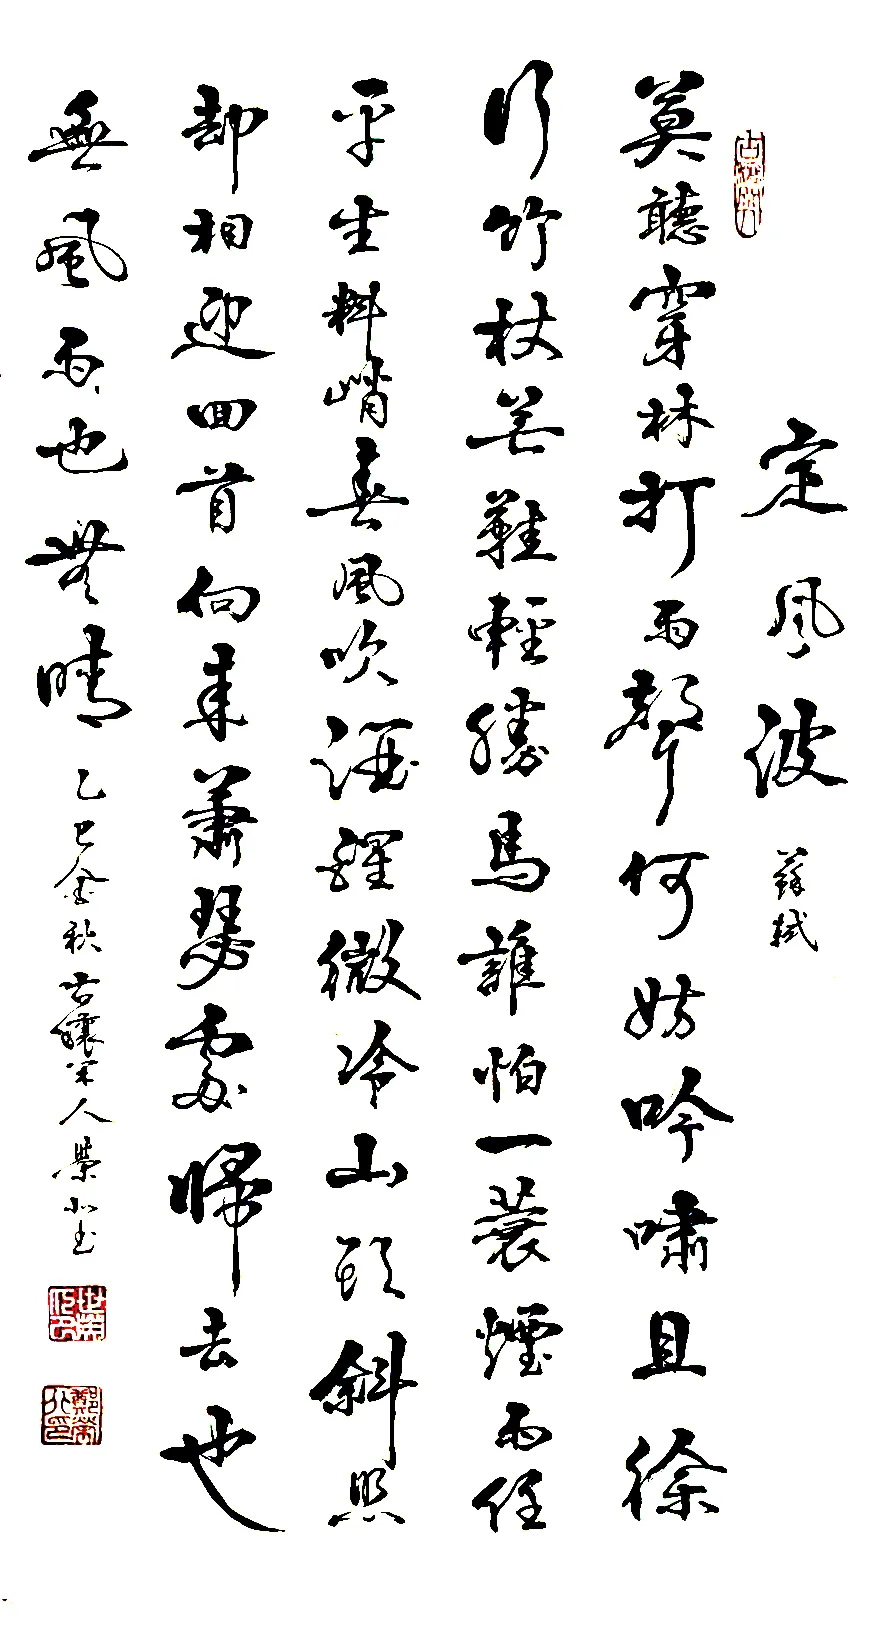 定风波 蘇軾
莫聽穿林打雨聲何妨吟嘯且徐
行竹杖芒鞋輕勝馬誰怕一蓑煙雨任
平生料峭春風吹酒醒微冷山頭斜照
却相迎回首向来蕭瑟處歸去也
無風雨也無晴 乙巳金秋古穰人榮书